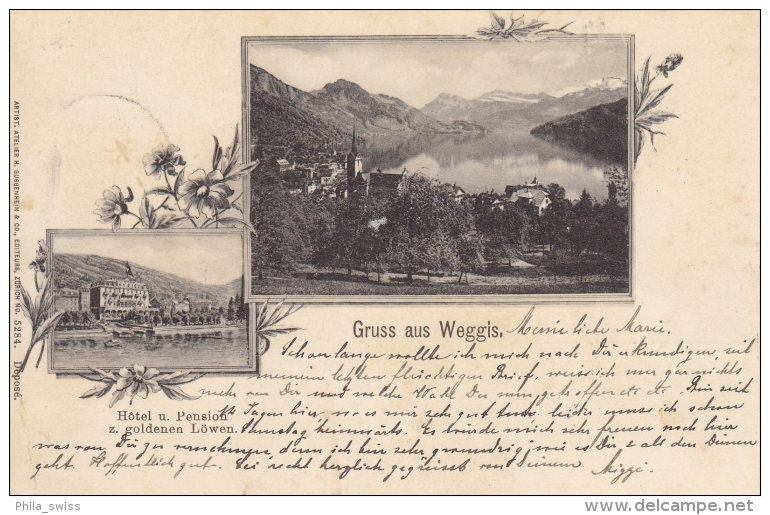 ARTIST. ATELIER H. GUGGENHEIM & CO., EDITEURS, ZÜRICH NO. 5284. Déposé.
Gruss aus Weggis.
Meine liebe Marie.
Schon lange wollte ich mich nach Dir erkundigen, seit
meinem letzten flüchtigen Brief, weiss ich nun gar nichts
mehr von Dir und welche Wahl Du nun getroffen etc etc. Bin seit
Hôtel u. Pension
z. goldenen Löwen.
14 Tagen hier, wo es mir sehr gut leider muss ich schon
heimwärts. Es würde mich sehr freuen noch hier
was von Dir zu vernehmen, denn ich bin sehr wie es Dir & all den Deinen
geht. Hoffentlich gut. Sei recht herzlich gegrüsst von Deinem
Phila_swiss
www.delcampe.net